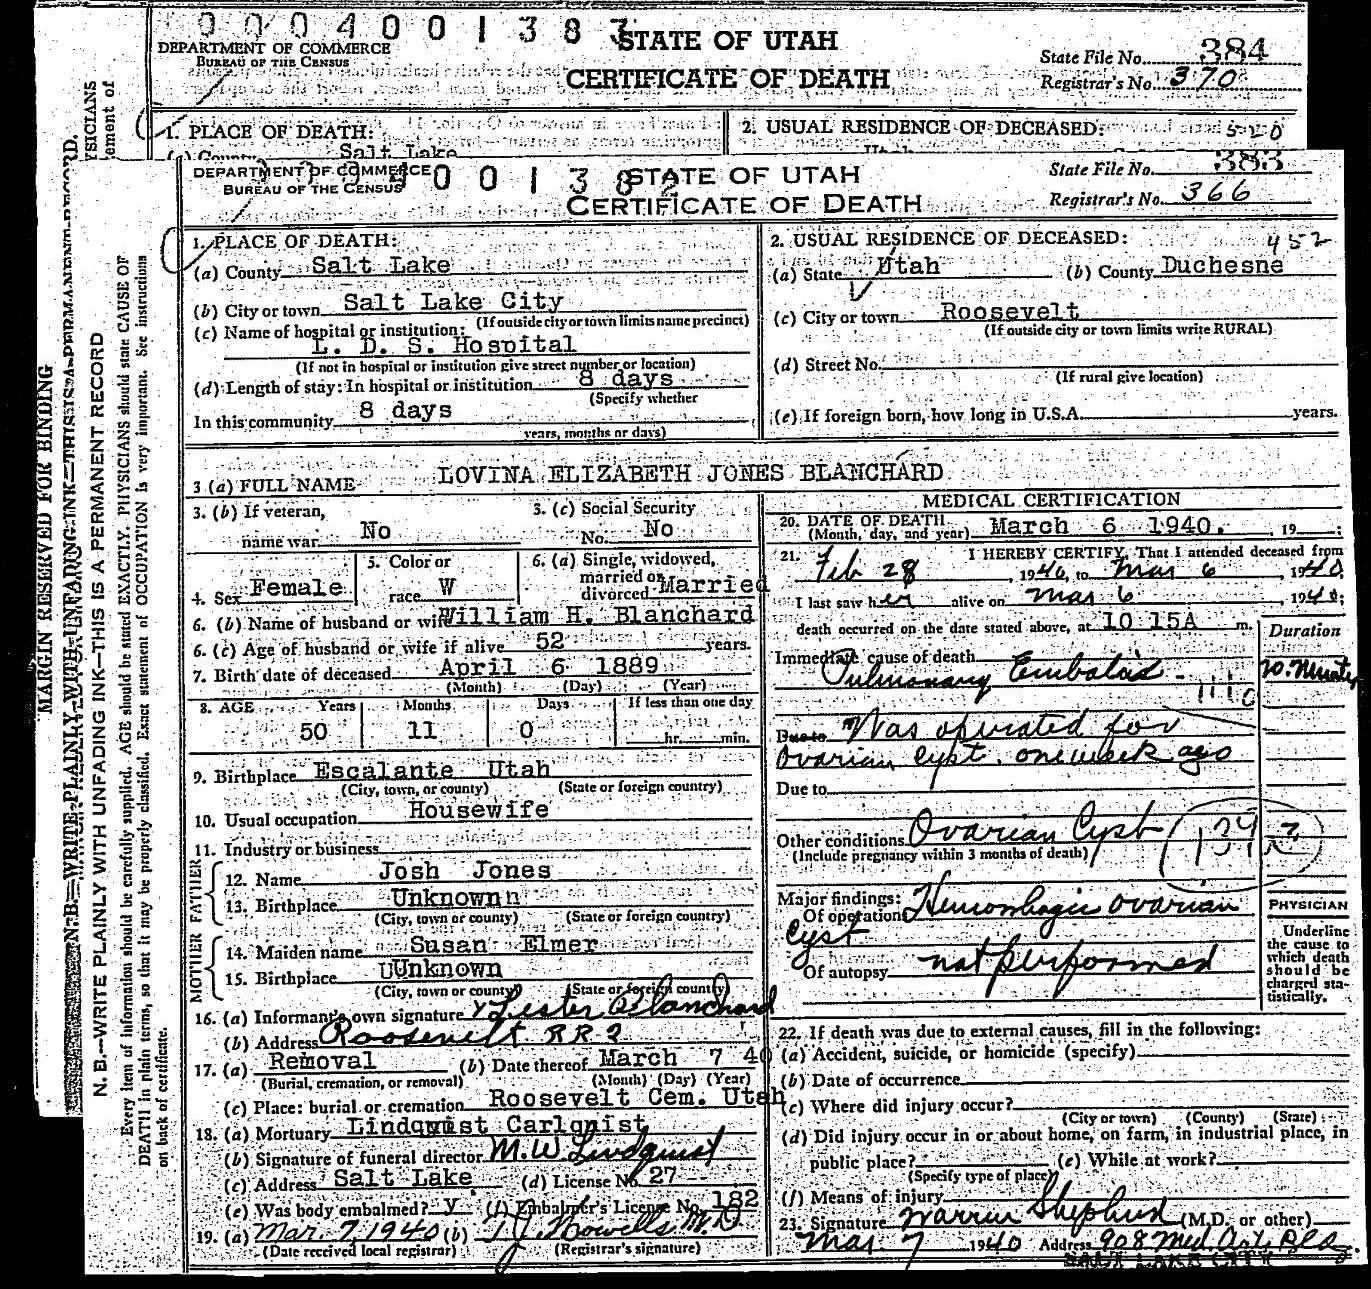 0004001383
STATE OF UTAH
CERTIFICATE OF DEATH
DEPARTMENT OF COMMERCE
BUREAU OF THE CENSUS
State File No. 384
Registrar's No. 370
1. PLACE OF DEATH:
2. USUAL RESIDENCE OF DECEASED:
520
(a) County Salt Lake
Utah
DEPARTMENT OF COMMERCE
BUREAU OF THE CENSUS
001382
STATE OF UTAH
CERTIFICATE OF DEATH
State File No. 383
Registrar's No. 366
1. PLACE OF DEATH:
(a) County Salt Lake
(b) City or town Salt Lake City
(If outside city or town limits name precinct)
(c) Name of hospital or institution:
L. D. S. Hospital
(If not in hospital or institution give street number or location)
(d) Length of stay: In hospital or institution 8 days
(Specify whether
In this community 8 days
years, months or days)
2. USUAL RESIDENCE OF DECEASED: 452
(a) State Utah (b) County Duchesne
(c) City or town Roosevelt
(If outside city or town limits write RURAL)
(d) Street No.
(If rural give location)
(e) If foreign born, how long in U.S.A. years.
3 (a) FULL NAME LOVINA ELIZABETH JONES BLANCHARD
3. (b) If veteran, name war No
3. (c) Social Security No. No
4. Sex Female
5. Color or race W
6. (a) Single, widowed, married or divorced Married
6. (b) Name of husband or wife William H. Blanchard
6. (c) Age of husband or wife if alive 52 years.
7. Birth date of deceased April 6 1889
(Month) (Day) (Year)
8. AGE Years Months Days If less than one day
50 11 0 hr. min.
9. Birthplace Escalante Utah
(City, town, or county) (State or foreign country)
10. Usual occupation Housewife
11. Industry or business
FATHER
12. Name Josh Jones
13. Birthplace Unknown
(City, town or county) (State or foreign country)
MOTHER
14. Maiden name Susan Elmer
15. Birthplace Unknown
(City, town or county) (State or foreign country)
16. (a) Informant's own signature x Lester Blanchard
(b) Address Roosevelt RR 2
17. (a) Removal (b) Date thereof March 7 40
(Burial, cremation, or removal) (Month) (Day) (Year)
(c) Place: burial or cremation Roosevelt Cem. Utah
18. (a) Mortuary Lindquist Carlquist
(b) Signature of funeral director M. W. Lindquist
(c) Address Salt Lake (d) License No. 27
(e) Was body embalmed? y (f) Embalmer's License No. 182
19. (a) Mar. 7, 1940 (b) T. J. Howells, M.D.
(Date received local registrar) (Registrar's signature)
MEDICAL CERTIFICATION
20. DATE OF DEATH March 6 1940. , 19 ;
(Month, day, and year)
21. I HEREBY CERTIFY, That I attended deceased from
Feb 28, 1940, to Mar 6, 1940
I last saw her alive on Mar 6, 1940;
death occurred on the date stated above, at 10 15A m.
Duration
Immediate cause of death
Pulmonary Embolus - 10 Minutes
Due to Was operated for
Ovarian cyst, one week ago
Due to
Other conditions Ovarian Cyst
(Include pregnancy within 3 months of death)
Major findings:
Of operations Hemorrhagic ovarian
cyst
Of autopsy not performed
PHYSICIAN
Underline
the cause to
which death
should be
charged sta-
tistically.
22. If death was due to external causes, fill in the following:
(a) Accident, suicide, or homicide (specify)
(b) Date of occurrence
(c) Where did injury occur?
(City or town) (County) (State)
(d) Did injury occur in or about home, on farm, in industrial place, in
public place? (e) While at work?
(Specify type of place)
(f) Means of injury
23. Signature Warren Shepherd (M.D. or other)
Mar 7 1940 Address 908 Med. Art. Bldg.
SALT LAKE CITY
MARGIN RESERVED FOR BINDING
N. B.—WRITE PLAINLY WITH UNFADING INK—THIS IS A PERMANENT RECORD.
PHYSICIANS
statement of
N. B.—WRITE PLAINLY WITH UNFADING INK—THIS IS A PERMANENT RECORD
Every item of information should be carefully supplied. AGE should be stated EXACTLY. PHYSICIANS should state CAUSE OF
DEATH in plain terms, so that it may be properly classified. Exact statement of OCCUPATION is very important. See instructions
on back of certificate.